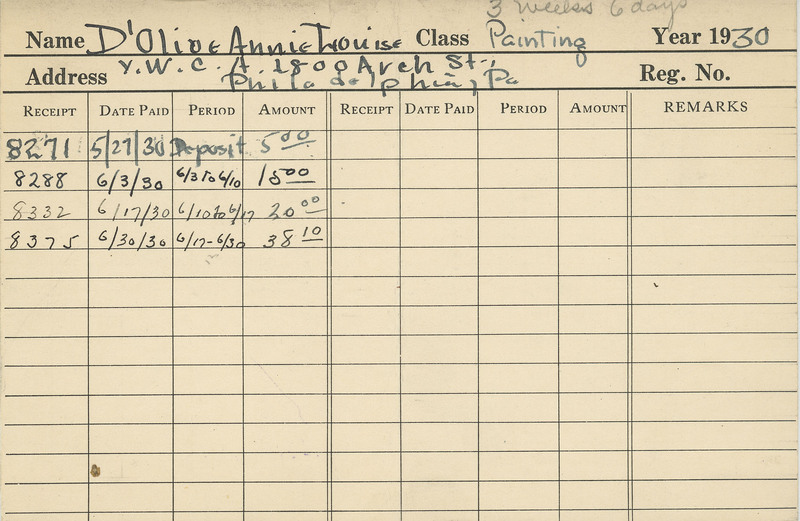 3 weeks 6 days
Name D'Olive Annie Louise Class Painting Year 1930
Address Y.W.C.A. 1800 Arch St., Philadelphia, Pa Reg. No.
RECEIPT DATE PAID PERIOD AMOUNT RECEIPT DATE PAID PERIOD AMOUNT REMARKS
8271 5/27/30 Deposit 5 00
8288 6/3/30 6/3 to 6/10 15 00
8332 6/17/30 6/10 to 6/17 20 00
8375 6/30/30 6/17-6/30 38 10